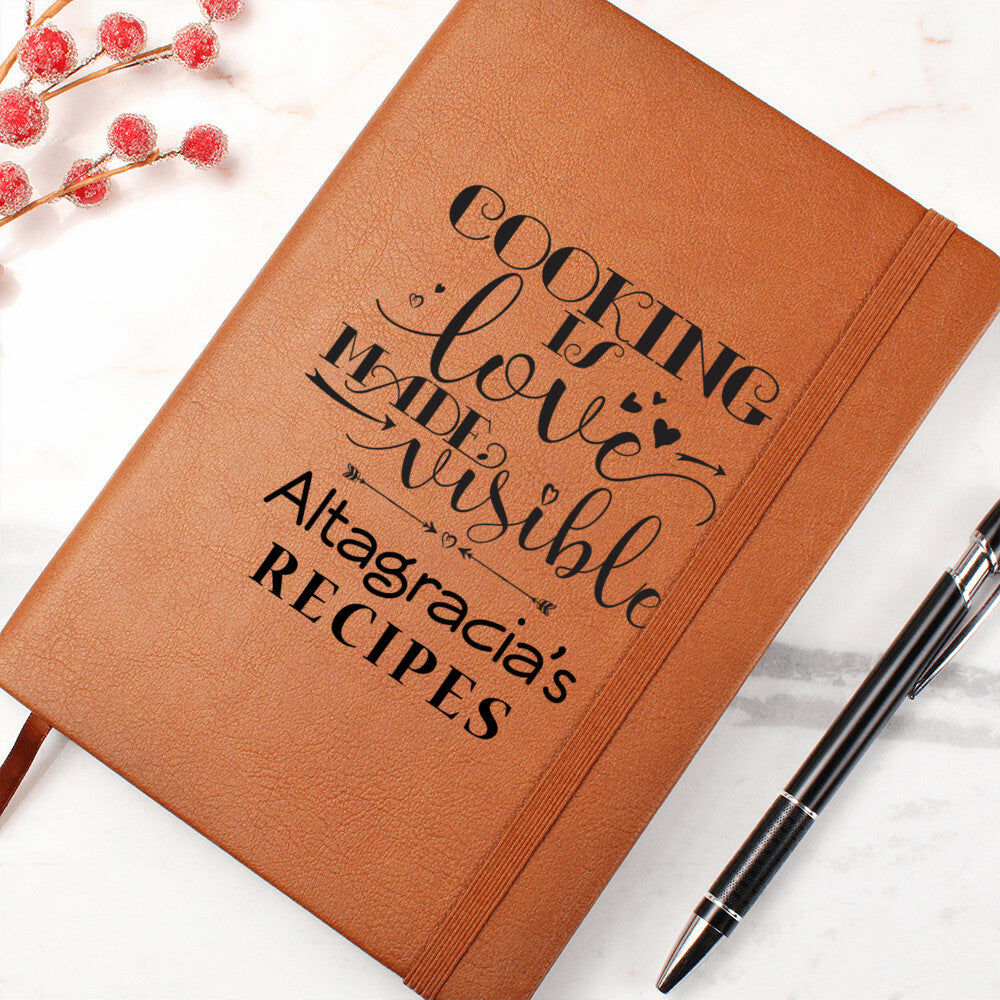 COOKING
IS
love
MADE
visible
Altagracia's
RECIPES